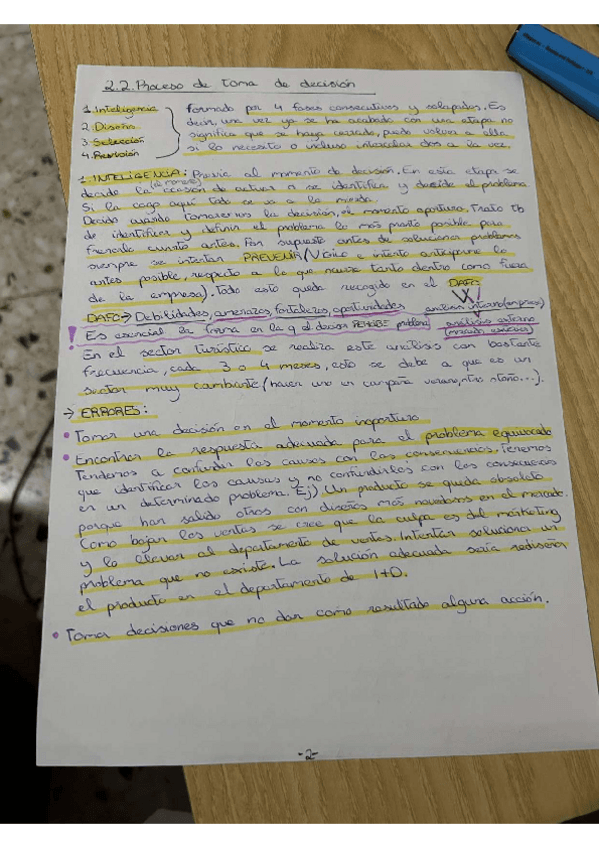 2.2. Proceso de toma de decisión
1. Inteligencia
2. Diseño
3. Selección
4. Revisión
formado por 4 fases consecutivas y solapadas. Es
decir, una vez ya se ha acabado con una etapa no
significa que se haya cerrado, puedo volver a ella
si lo necesito o incluso intercalar dos a la vez.
1. INTELIGENCIA: Previa al momento de decisión. En esta etapa se
decide la ocasión de actuar o se identifica y decide el problema
Si la cago aquí todo se va a la mierda.
Decido cuando tomaremos la decisión, el momento oportuno. Trato tb
de identificar y definir el problema lo más pronto posible para
frenarle cuanto antes. Por supuesto antes de solucionar problemas
siempre se intentan PREVENIR (Vigilo e intento anticiparme lo
antes posible, respecto a lo que nause tanto dentro como fuera
de la empresa). Todo esto queda recogido en el DAFO
DAFO → Debilidades, amenazas, fortalezas, oportunidades análisis interno (empresa)
! Es esencial la forma en la q el decisor PERCIBE problema análisis externo
En el sector turístico se realiza este análisis con bastante
frecuencia, cada 3 o 4 meses, esto se debe a que es un
sector muy cambiante (hacen uno en campaña verano, otro otoño...).
→ ERRORES:
• Tomar una decisión en al momento inoportuno
• Encontrar la respuesta adecuada para el problema equivocado
Tendemos a confundir las causas con las consecuencias. Tenemos
que identificar las causas y no confundirlas con las consecuencias
en un determinado problema. Ej) Un producto se queda obsoleto
porque han salido otros con diseños más novedosos en el mercado.
Como bajan las ventas se cree que la culpa es del márketing
y lo llevan al departamento de ventas. Intentar solucionar un
problema que no existe. La solución adecuada sería rediseñar
el producto en el departamento de I+D.
• Tomar decisiones que no dan como resultado alguna acción.
-2-